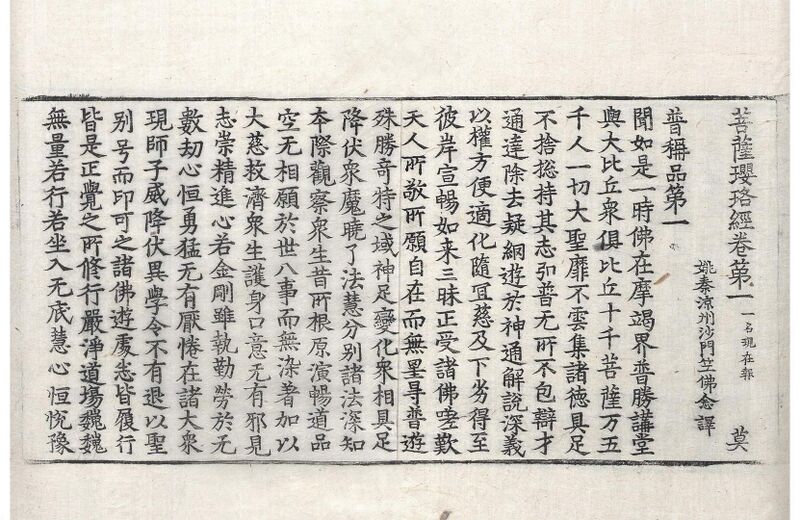 菩薩瓔珞經卷第一 一名現在報 莫
姚秦涼州沙門竺佛念譯
普稱品第一
聞如是一時佛在摩竭界普勝講堂
與大比丘衆俱比丘十千菩薩万五
千人一切大聖靡不雲集諸德具足
不捨総持其志弘普无所不包辯才
通達除去疑網遊於神通解說深義
以權方便適化隨冝慈及下劣得至
彼岸宣暢如来三昧正受諸佛嗟歎
天人所敬所願自在而無罣㝵普遊
殊勝奇特之域神足變化衆相具足
降伏衆魔曉了法慧分别諸法深知
本際觀察衆生昔所根原演暢道品
空无相願於世八事而無染著加以
大慈救濟衆生護身口意无有邪見
志崇精進心若金剛雖執勤勞於无
數劫心恒勇猛无有厭惓在諸大衆
現師子威降伏異學令不有退以聖
别号而印可之諸佛遊處志皆履行
皆是正覺之所修行嚴淨道場巍巍
無量若行若坐入无底慧心恒悅豫